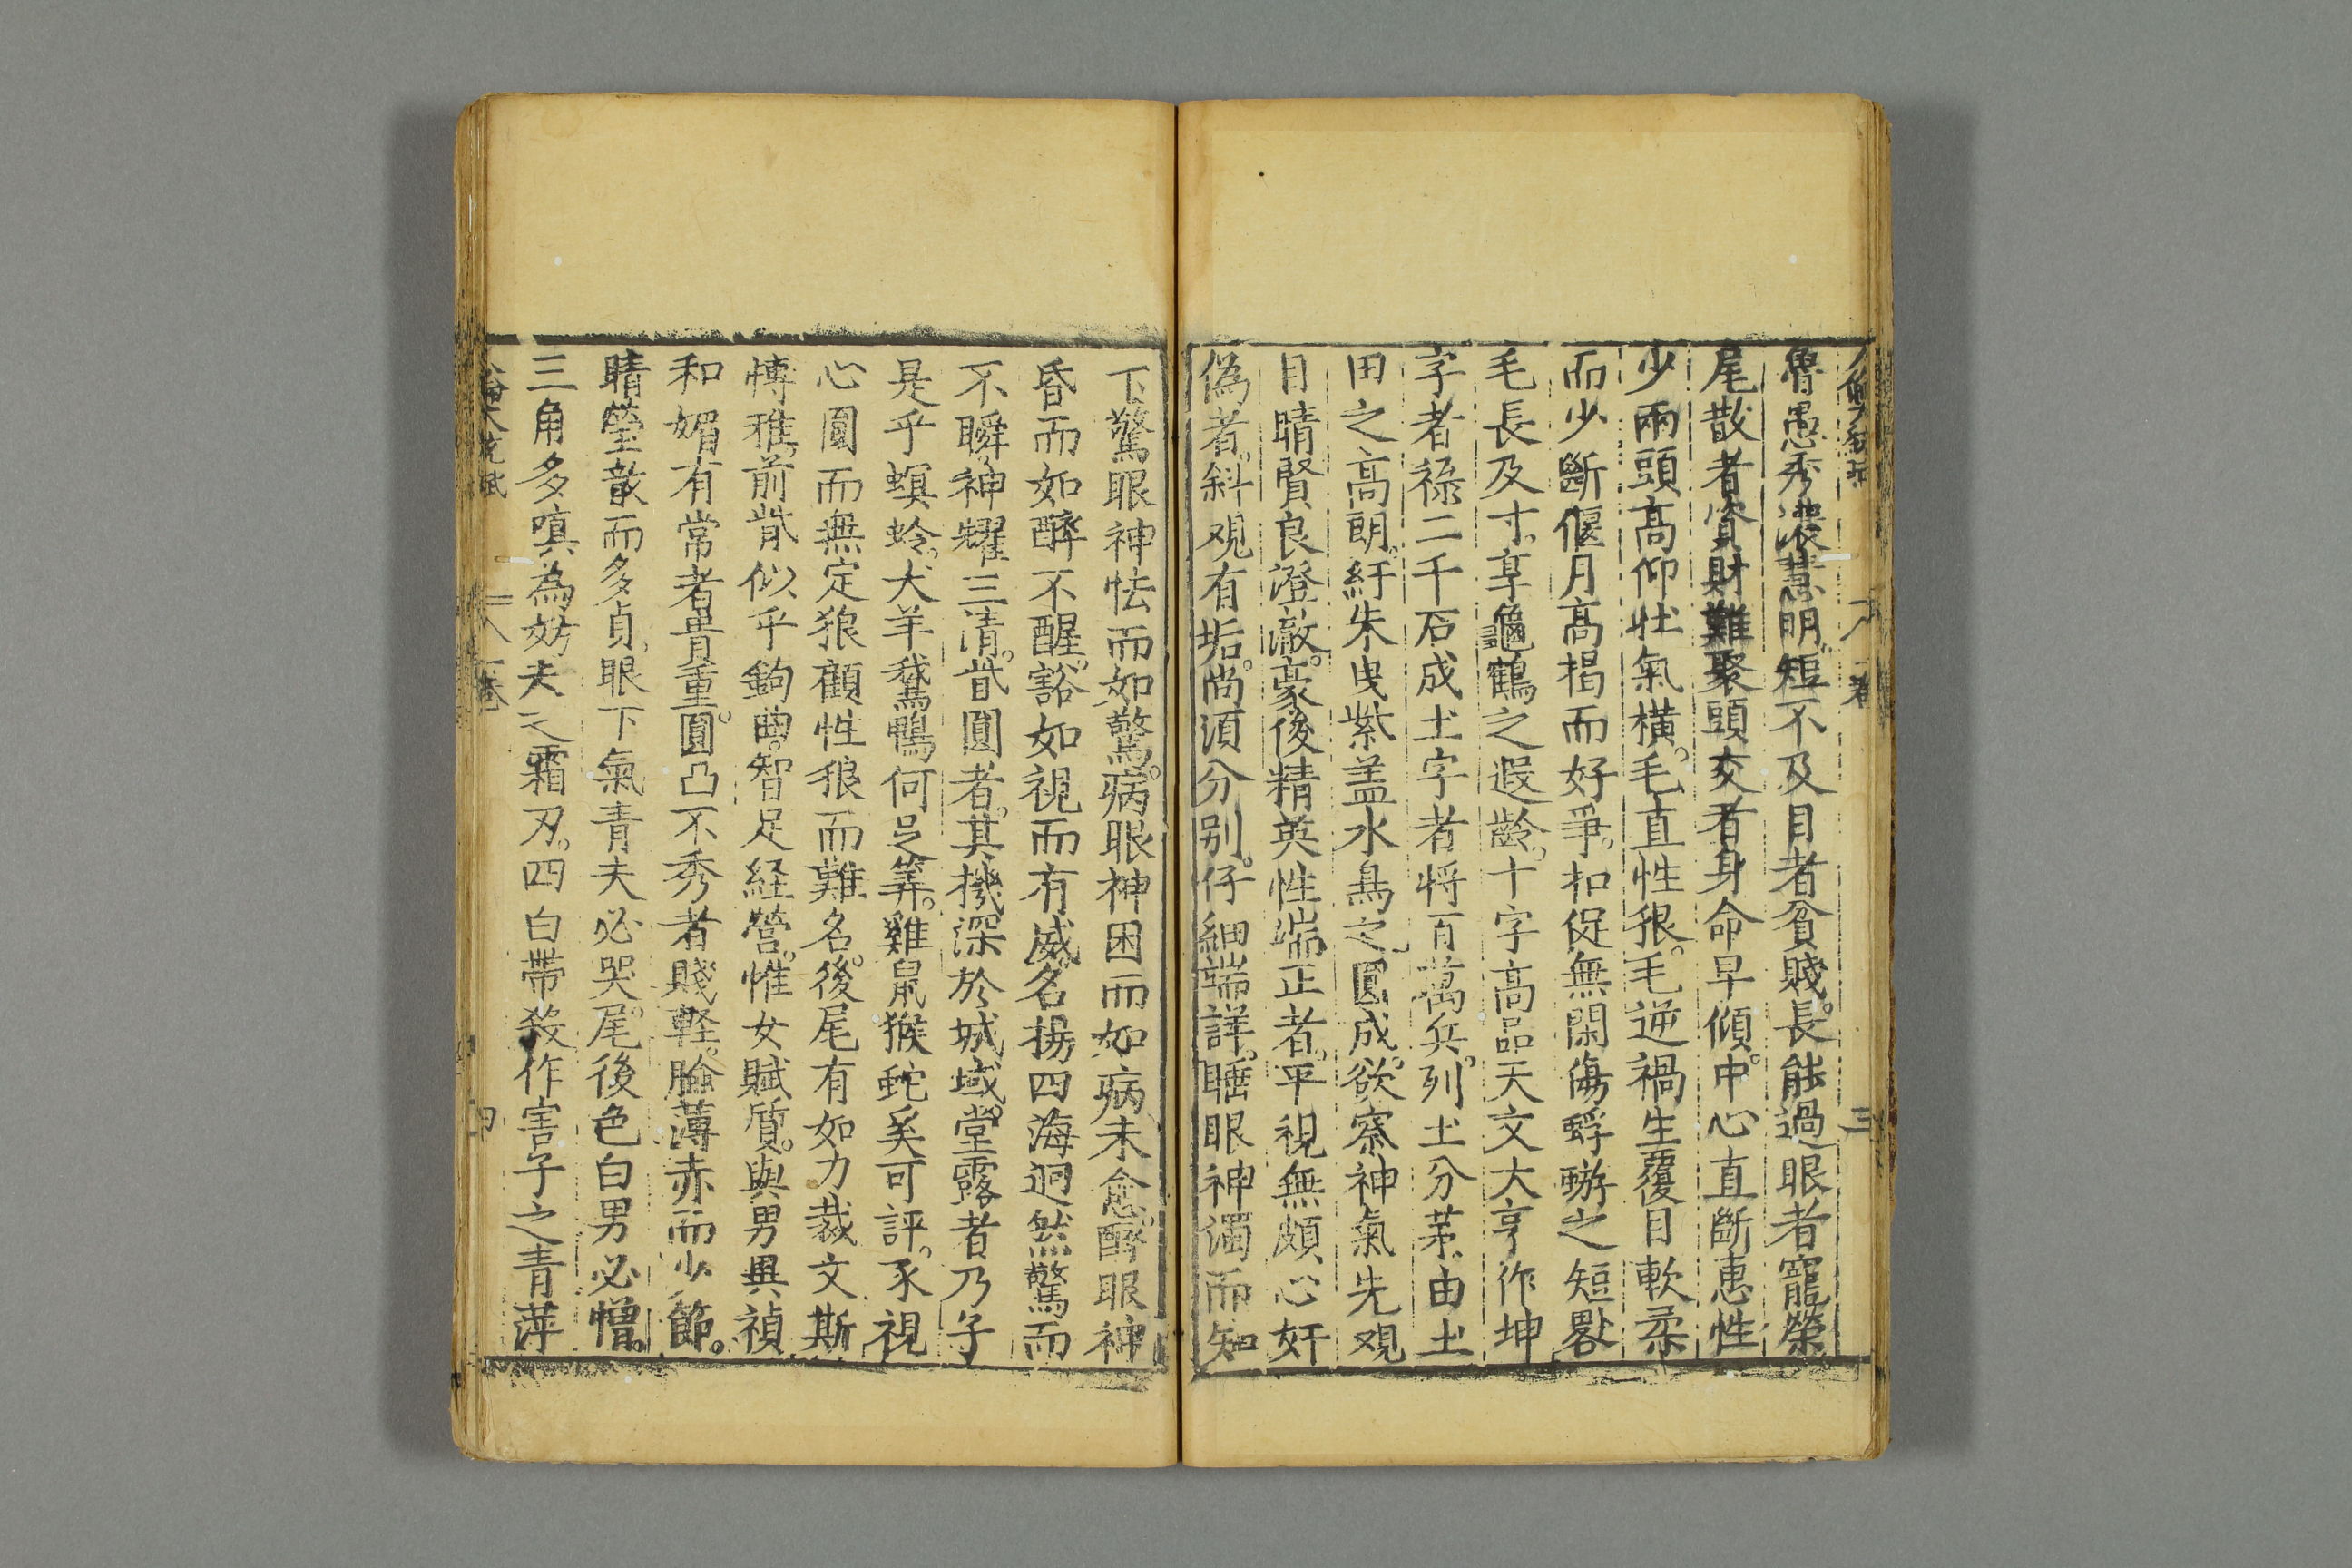 魯愚秀濃慧明短不及目者貧賤長能過眼者寵榮
尾散者資財難聚頭交者身命早傾中心直斷惠性
少兩頭高仰壮氣橫毛直性狠毛逆禍生覆目軟柔
而少斷偃月高揭而好爭扣促無閑傷蜉蝣之短晷
毛長及寸享龜鶴之遐齡十字高品天文大亨作坤
字者祿二千石成土字者将百萬兵列土分茅由土
田之高朗紆朱曳紫盖水鳥之圓成欲察神氣先观
目睛賢良澄澈豪後精英性端正者平視無頗心奸
偽者斜观有垢尚須分别仔細端詳睡眼神濁而知
下驚眼神怯而如驚病眼神困而如病未愈醉眼神
昏而如醉不醒豁如視而有威名揚四海迥然驚而
不瞬神耀三清眥圓者其機深於城域堂露者乃子
是乎螟蛉犬羊鵞鴨何足筭雞鼠猴蛇奚可評豕視
心圓而無定狼顧性狼而難名後尾有如力裁文斯
愽雅前眥似乎鉤曲智足経營惟女賦質與男異禎
和媚有常者貴重圓凸不秀者賤輕臉薄赤而少節
睛瑩散而多貞眼下氣青夫必哭尾後色白男必憎
三角多嗔為妨夫之霜刃四白帶殺作害子之青萍